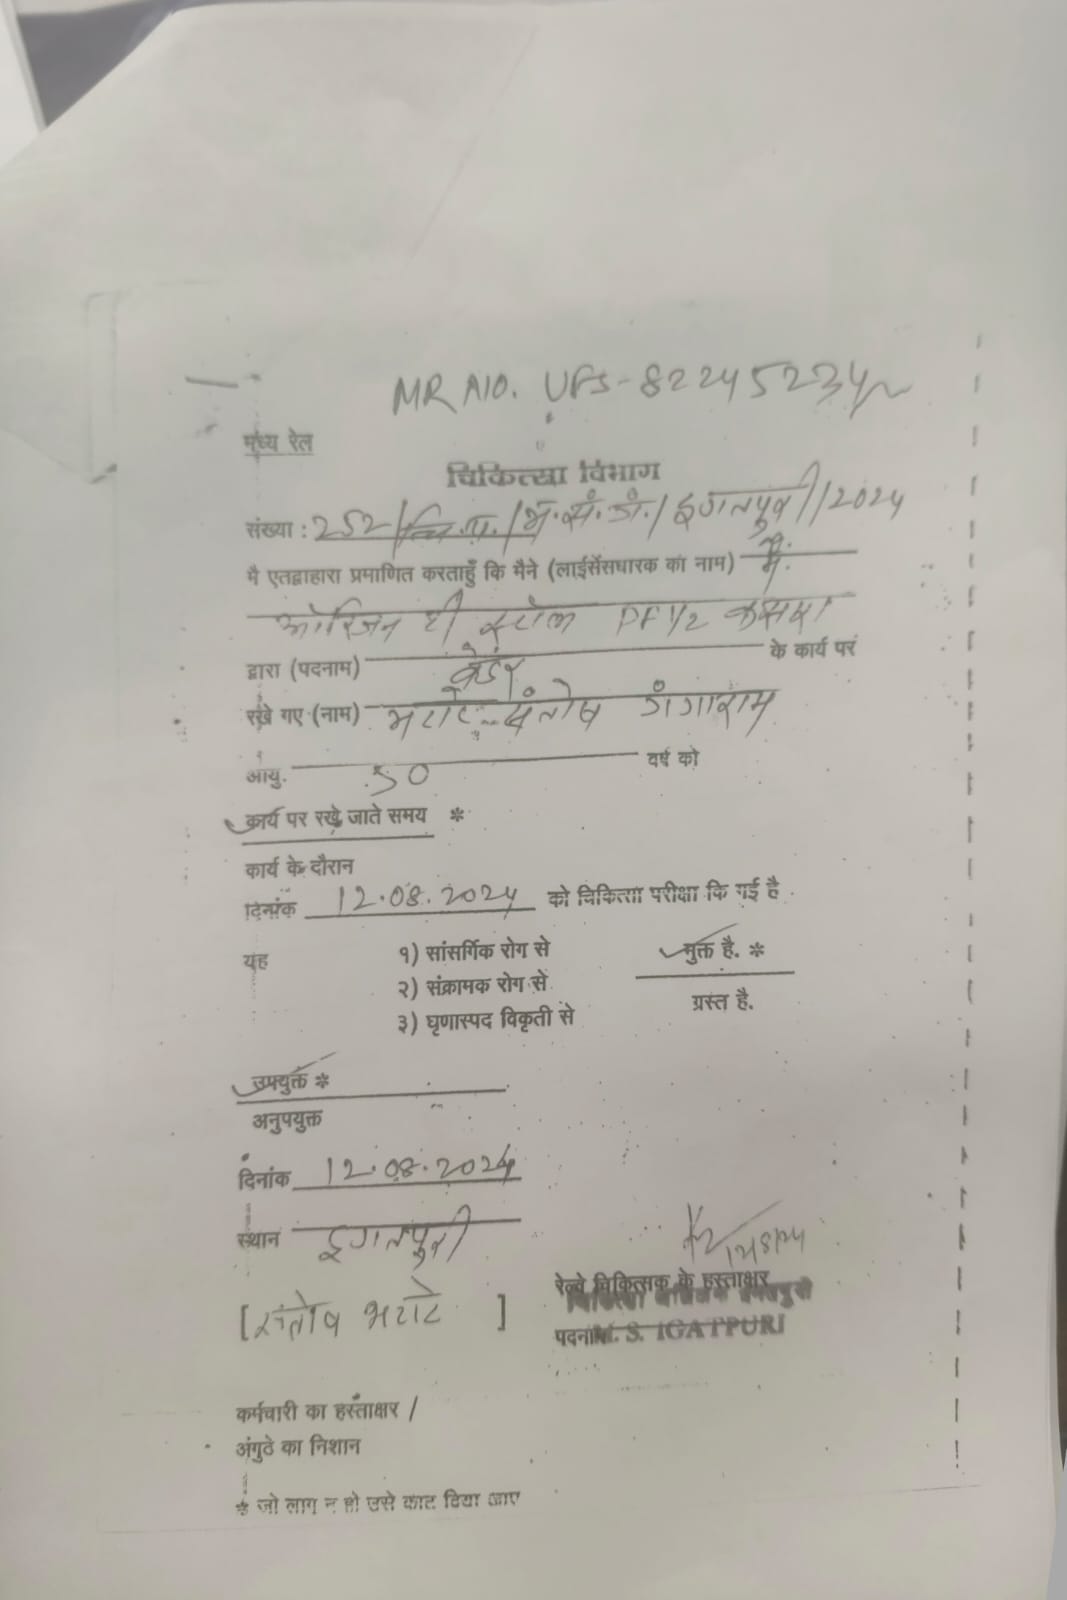 MR NO. UFS-82245234
मध्य रेल
चिकित्सा विभाग
संख्या : 252/चि.प./भ.सं.अं./इगतपुरी/2024
मै एतद्वाहारा प्रमाणित करताहुँ कि मैने (लाईसेंसधारक का नाम) मे.
ओरिजन टी स्टॉल PF 1/2 कसारा
द्वारा (पदनाम) वेंडर के कार्य परं
रखे गए (नाम) भटाटे संतोष गंगाराम
आयु. 50 वर्ष को
कार्य पर रखे जाते समय *
कार्य के दौरान
दिनांक 12.08.2024 को चिकित्सा परीक्षा कि गई है
यह १) सांसर्गिक रोग से मुक्त है. *
२) संक्रामक रोग से
३) घृणास्पद विकृती से ग्रस्त है.
उपयुक्त *
अनुपयुक्त
दिनांक 12.08.2024
स्थान इगतपुरी
12/8/24
रेल्वे चिकित्सक के हस्ताक्षर
[संतोष भटाटे]
पदनाम M. S. IGATPURI
कर्मचारी का हस्ताक्षर /
अंगुठे का निशान
* जो लागू न हो उसे काट दिया जाए